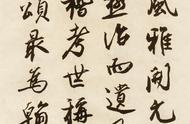 風雅開元
極治而遺
稽考世稱
頌最為翰